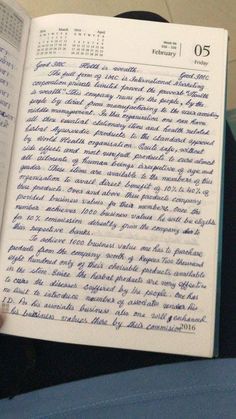 2016
March
2016
April
Week 06
February
05
Friday
Good IMC Health is wealth. Good IMC
The full form of IMC is International Marketing
corporation private limited proved the proverb "Health
is wealth". This company runs for the people, by the
people by direct from manufacturing to the user avoiding
middle management. In this organisation one can have
all their essential ideal beauty items and health related
herbal Ayurvedic products to the standard approved
by World Health organisation. Quite safe without
side effects and most usefull products to cure almost
all ailments of human beings irrespective of age and
gender. These items are available to the members of this
organisation to avail direct benefit of 10% to 40% of
their products. Over and above these products company
provided business values for their members. Once the
member achieves 1000 business value he will be eligible
for 10% commission directly from the company to
their respective banks.
To achieve 1000 business value one has to purchase
products from the company worth of Rupees Two thousand
eight hundred only of their choisable products available
in the store. Since the herbal products are very effective
to cure the diseases suffered by the people. One has
no limit to introduce number of associates under his
I.D. As his associates business also one will enhanced
his business values there by this commission
2016